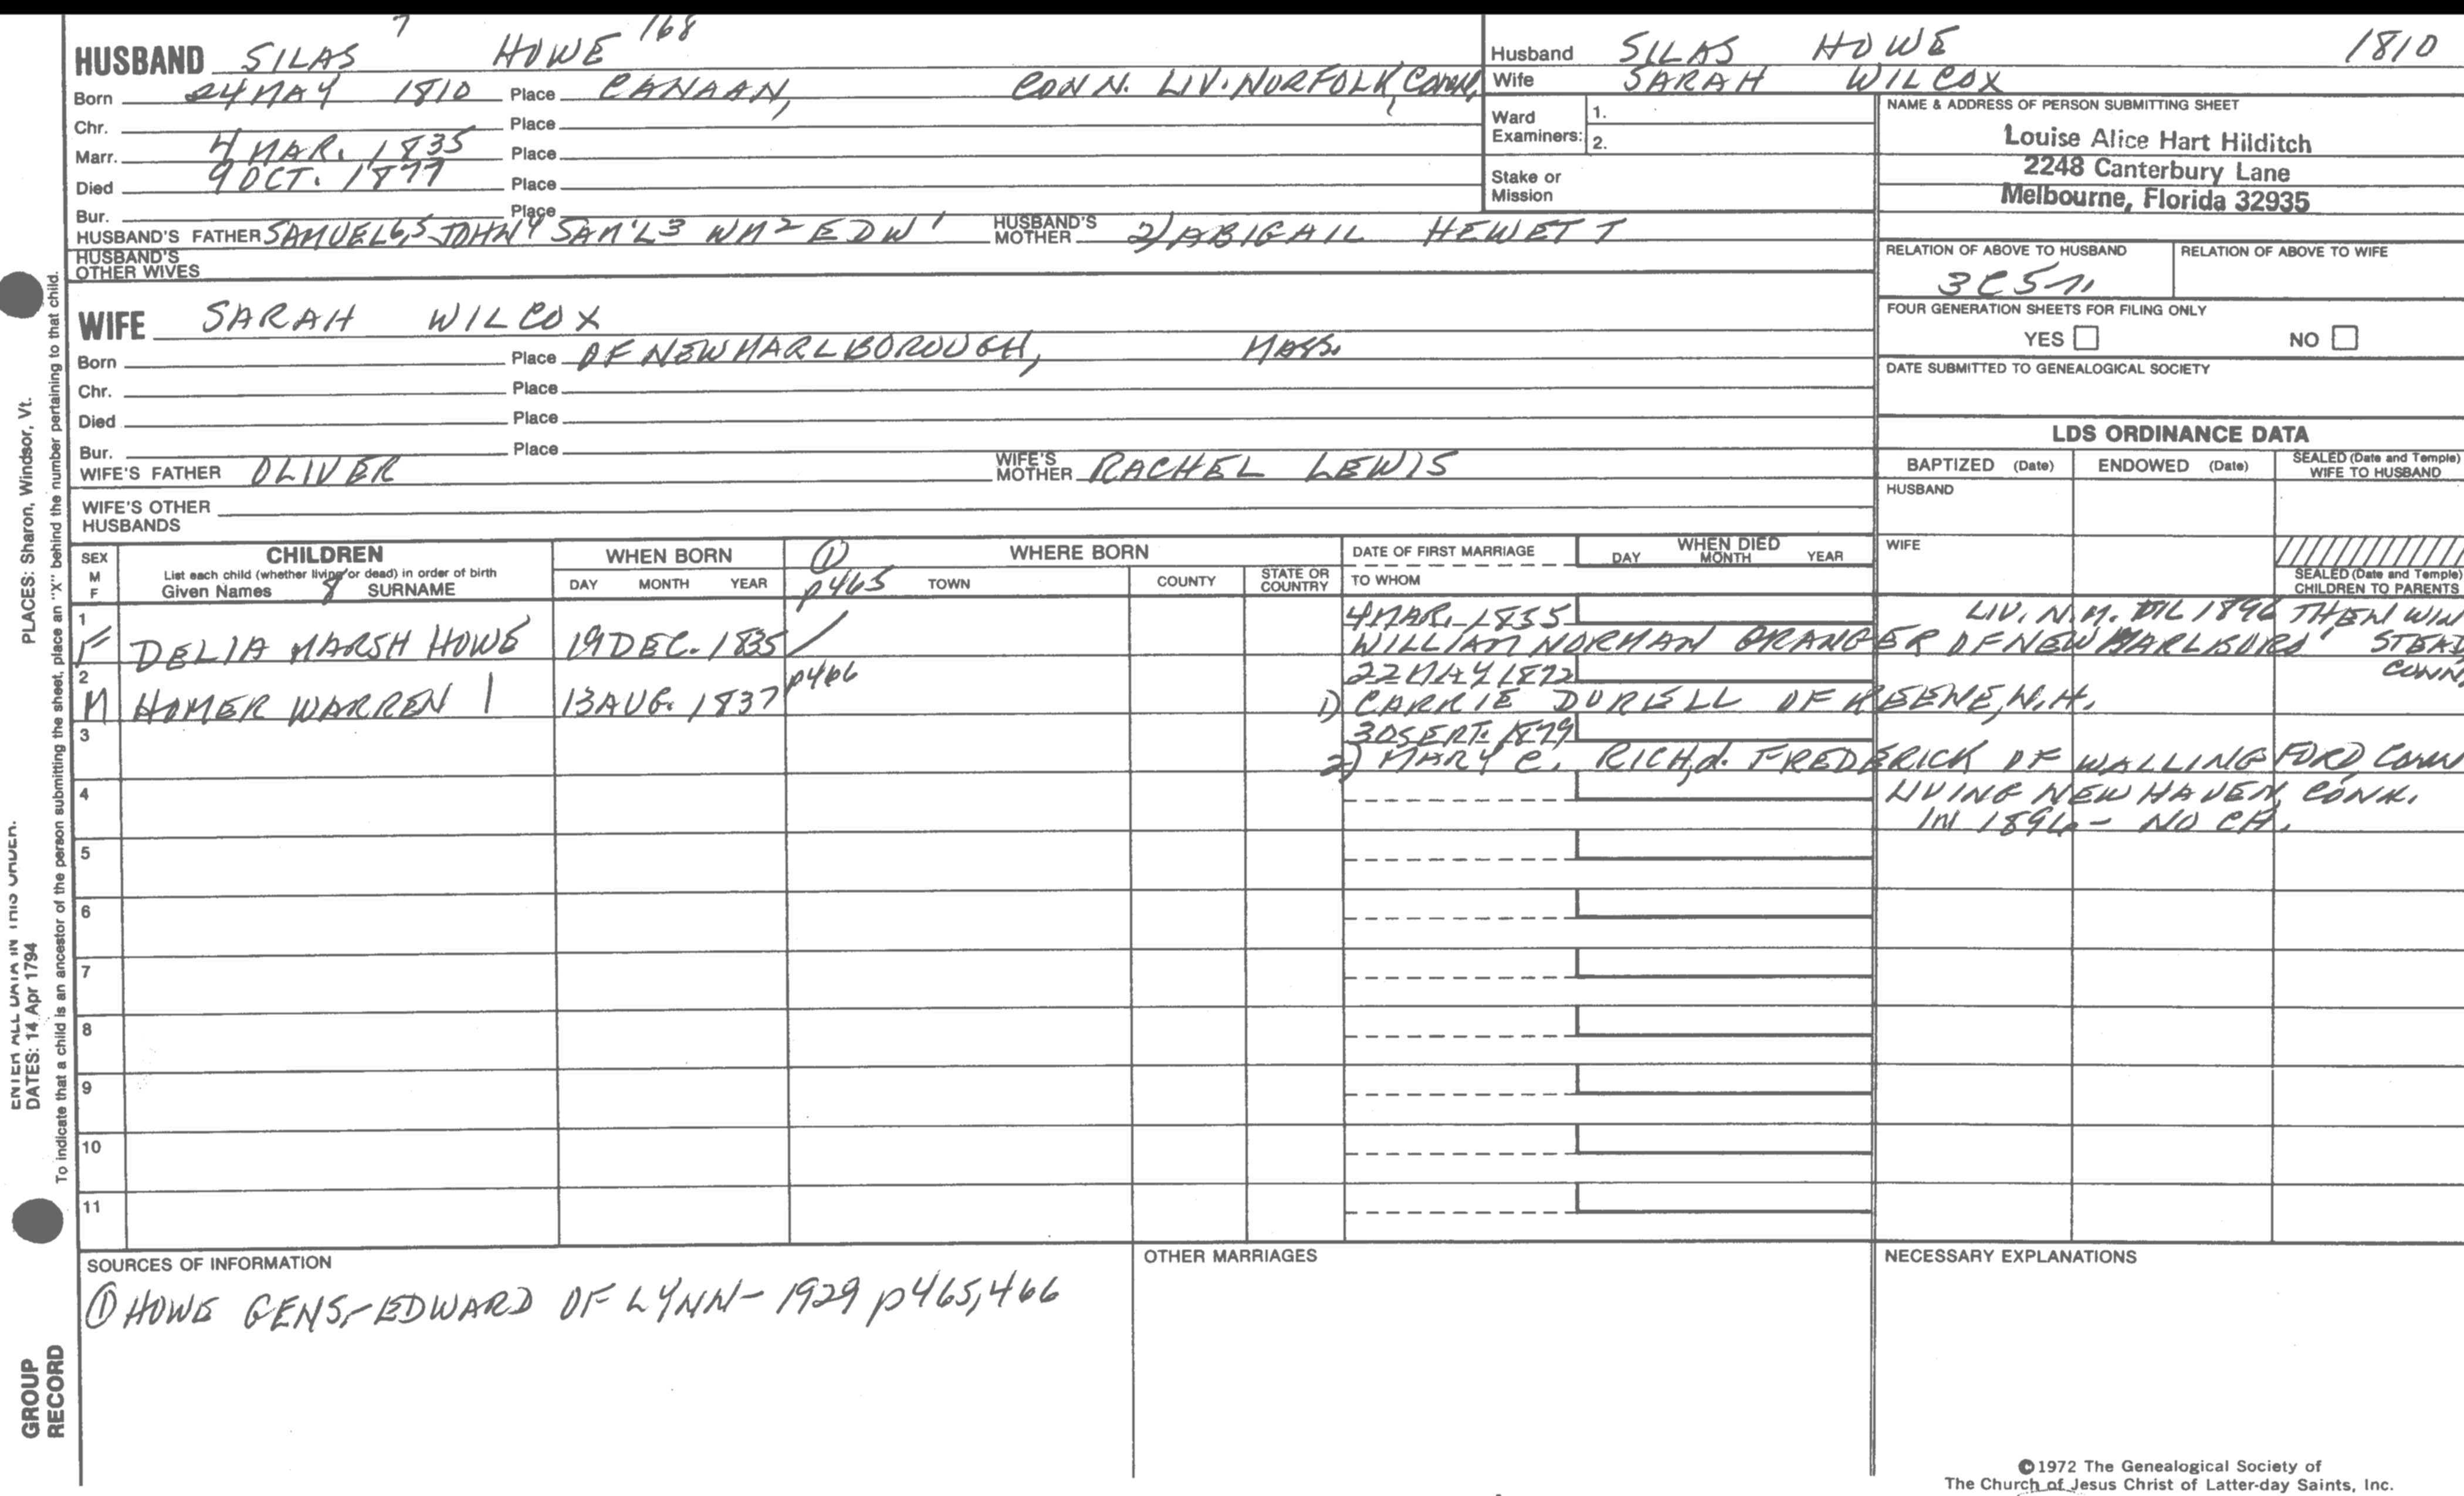 7 168
HUSBAND SILAS HOWE
Born 24 MAY 1810 Place CANAAN, CONN. LIV. NORFOLK, CONN.
Chr. Place
Marr. 4 MAR. 1835 Place
Died 9 OCT. 1877 Place
Bur. Place
HUSBAND'S FATHER SAMUEL 6,5 JOHN 4 SAM'L 3 WM 2 EDW 1 HUSBAND'S MOTHER 2) ABIGAIL HEWETT
HUSBAND'S OTHER WIVES
WIFE SARAH WILCOX
Born Place OF NEW MARLBOROUGH, MASS.
Chr. Place
Died Place
Bur. Place
WIFE'S FATHER OLIVER WIFE'S MOTHER RACHEL LEWIS
WIFE'S OTHER HUSBANDS
Husband SILAS HOWE 1810
Wife SARAH WILCOX
Ward Examiners: 1.
2.
Stake or Mission
NAME & ADDRESS OF PERSON SUBMITTING SHEET
Louise Alice Hart Hilditch
2248 Canterbury Lane
Melbourne, Florida 32935
RELATION OF ABOVE TO HUSBAND RELATION OF ABOVE TO WIFE
3C5r
FOUR GENERATION SHEETS FOR FILING ONLY
YES NO
DATE SUBMITTED TO GENEALOGICAL SOCIETY
LDS ORDINANCE DATA
BAPTIZED (Date) ENDOWED (Date) SEALED (Date and Temple) WIFE TO HUSBAND
HUSBAND
WIFE
SEALED (Date and Temple) CHILDREN TO PARENTS
SEX M F
CHILDREN
List each child (whether living or dead) in order of birth
Given Names 8 SURNAME
WHEN BORN
DAY MONTH YEAR
① WHERE BORN
p465 TOWN COUNTY STATE OR COUNTRY
DATE OF FIRST MARRIAGE
TO WHOM
WHEN DIED
DAY MONTH YEAR
1 4 MAR. 1855 LIV. N.M. TIL 1896 THEN WIN
F DELIA MARSH HOWE 19 DEC. 1835 / WILLIAM NORMAN GRANGER OF NEW MARLBORO' STEAD
2 p466 22 MAY 1872 CONN.
M HOMER WARREN | 13 AUG. 1837 1) CARRIE DURELL OF KEENE, N.H.
3 30 SEPT. 1879
2) MARY C. RICH, d. FREDERICK OF WALLINGFORD, CONN
4 LIVING NEW HAVEN, CONN.
IN 1896 - NO CH.
5
6
7
8
9
10
11
SOURCES OF INFORMATION
① HOWE GENS,-EDWARD OF LYNN- 1929 p465,466
OTHER MARRIAGES
NECESSARY EXPLANATIONS
©1972 The Genealogical Society of
The Church of Jesus Christ of Latter-day Saints, Inc.
PLACES: Sharon, Windsor, Vt.
To indicate that a child is an ancestor of the person submitting the sheet, place an "X" behind the number pertaining to that child.
ENTER ALL DATA IN THIS ORDER.
DATES: 14 Apr 1794
GROUP
RECORD